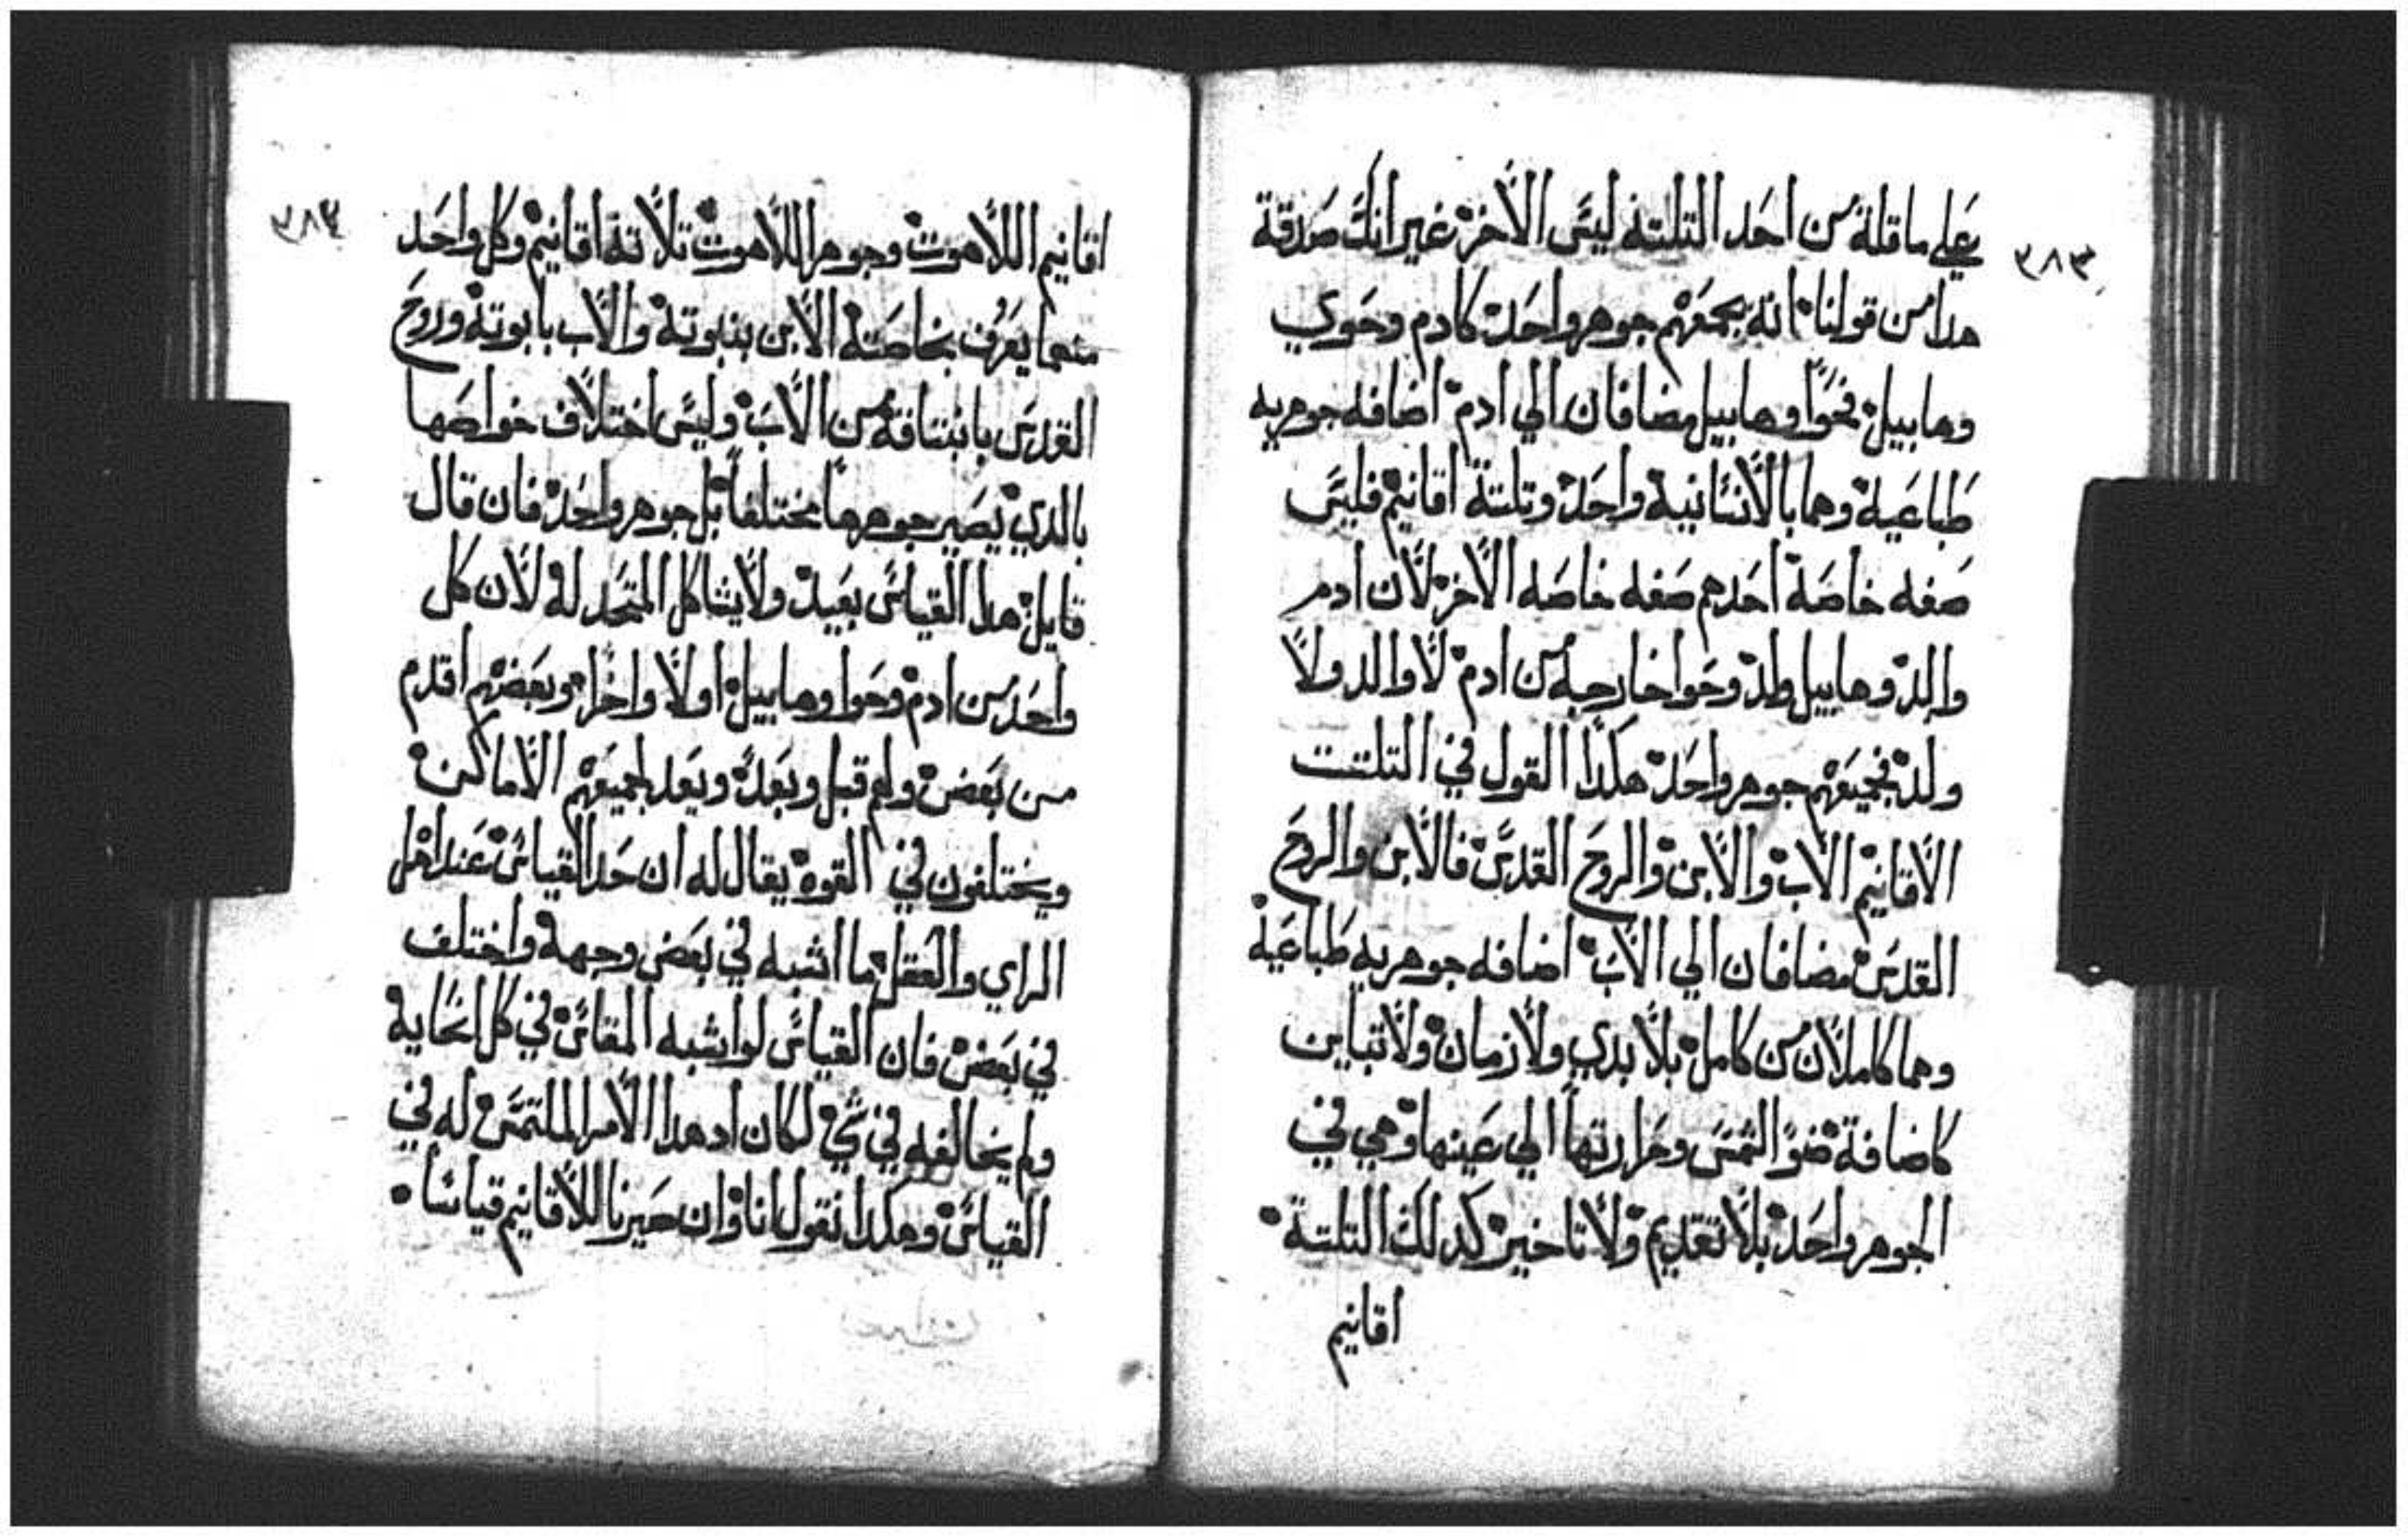 ٣٨٣
علي ماقلة من احد التلتة ليس الاخر غير انك صدقة
هدا من قولنا انه يجمعهم جوهر واحد كادم وحوي
وهابيل فحوا وهابيل مضافان الي ادم اضافه جوهريه
طباعية وهما بالانسانية واحد وتلتة اقانيم فليس
صفه خاصة احدهم صفه خاصه الاخر لان ادم
والد وهابيل ولد وحوا خارجة من ادم لا والد ولا
ولد فجميعهم جوهر واحد هكدا القول في التلتت
الاقانيم الاب والابن والروح القدس فالابن والروح
القدس مضافان الي الاب اضافه جوهريه طباعية
وهما كاملان من كامل بلا بدي ولا زمان ولا تباين
كاضافة ضو الشمس وحرارتها الي عينها وهي في
الجوهر واحد بلا تقديم ولا تاخير كدلك التلتة
اقانيم
٣٨٤
اقانيم اللاهوت وجوهر اللاهوت تلاتة اقانيم وكل واحد
منهما يعرف بخاصتة الابن ببنوتة والاب بابوتة وروح
القدس بانبتاقة من الاب وليس اختلاف خواصها
بالدي يصير جوهرها مختلفا بل جوهر واحد فان قال
قايل هدا القياس بعيد ولا يشاكل المتحد له لان كل
واحد من ادم وحوا وهابيل اولا واخرا وبعضهم اقدم
من بعض ولهم قبل وبعد ويعد لجميعهم الاماكن
ويختلفون في القوة يقال له ان حد القياس عند اهل
الراي والعقل ما اشبه في بعض وجهة واختلف
في بعض فان القياس لو اشبه المقاس في كل انحايه
ولم يخالفه في شي لكان اد هدا الامر الملتمس له في
القياس وهكدا نقول انا وان صيرنا للاقانيم قياسا